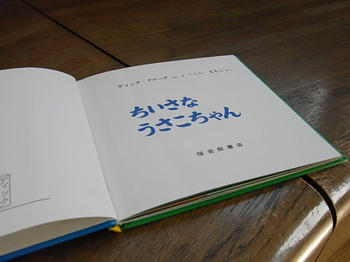 ディック・ブルーナ ぶん/え いしい ももこ やく
ちいさな
うさこちゃん
福音館書店
ディック